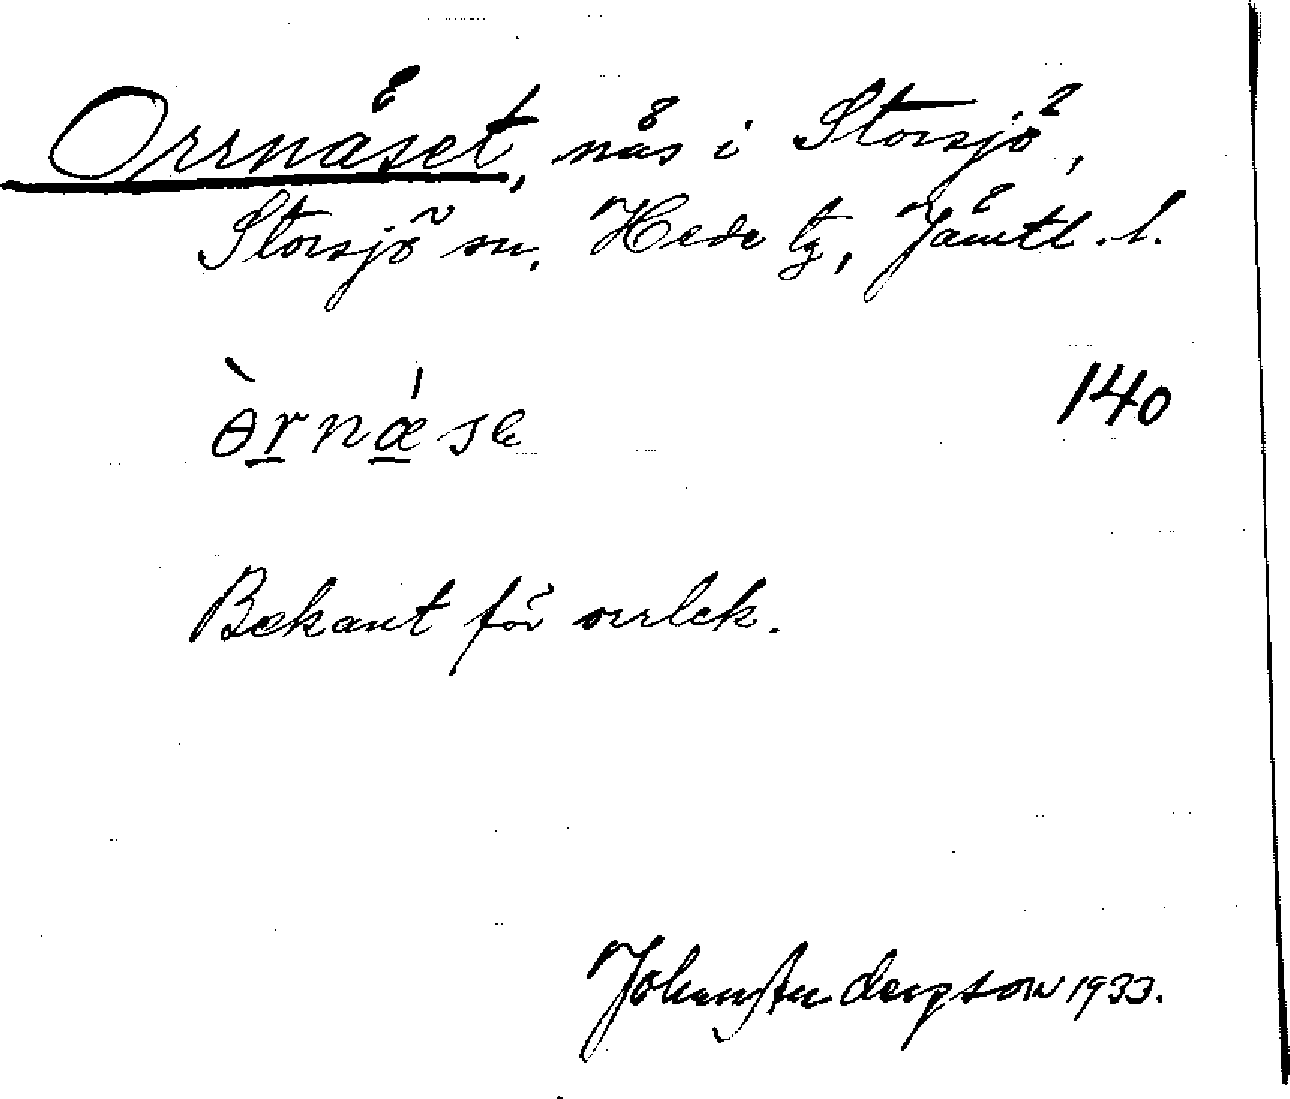 Orrnäset, näs i Storsjö,
Storsjö sn, Hede tg, Jämtl. l.
ɵ̀rnǽsɐ 140
Bekant för orrlek.
Johan Andersson 1933.